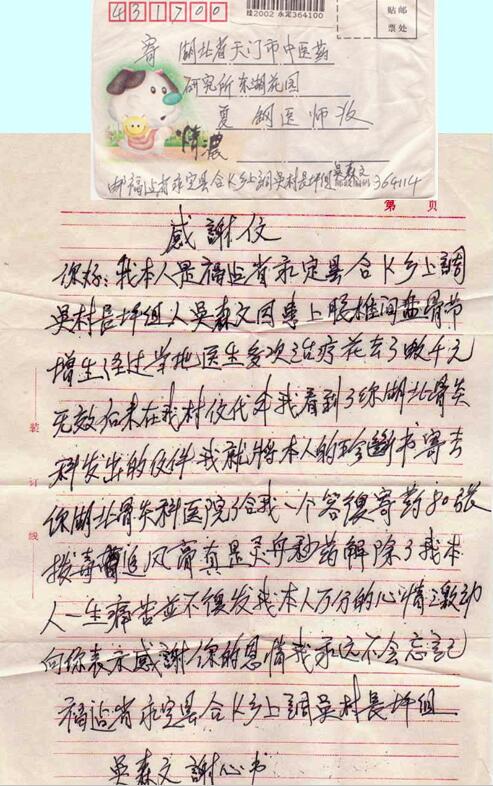 431700
桂2002 永定364100
贴邮
票处
寄 湖北省天门市中医药
研究所东湖花园
夏钢医师收
情浓
邮福建省永定县合K乡上調吴村長坪组吴森文 邮政编码 364114
第 页
感謝佼
你好:我本人是福建省永定县合K乡上調
吴村長坪组人吴森文因事上腰椎间盘骨节
增生经过当地医生多次治疗花去了数千元
无效后来在我村佼代办我看到了你湖北骨炎
科发出的佼件我就将本人的珍断书寄去
你湖北骨炎科医院了给我一个答復寄药30张
拔毒追风膏真是灵丹秒药解除了我本
人一生痛苦並不復发我本人万分的心情之激动
向你表示感謝你的恩情我永远不会忘記
福建省永定县合K乡上調吴村長坪组
吴森文謝心书
装
订
线